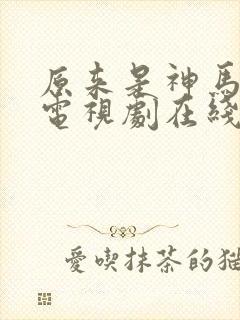 原来是神馬
電視劇在綫
愛喫抹茶的猫